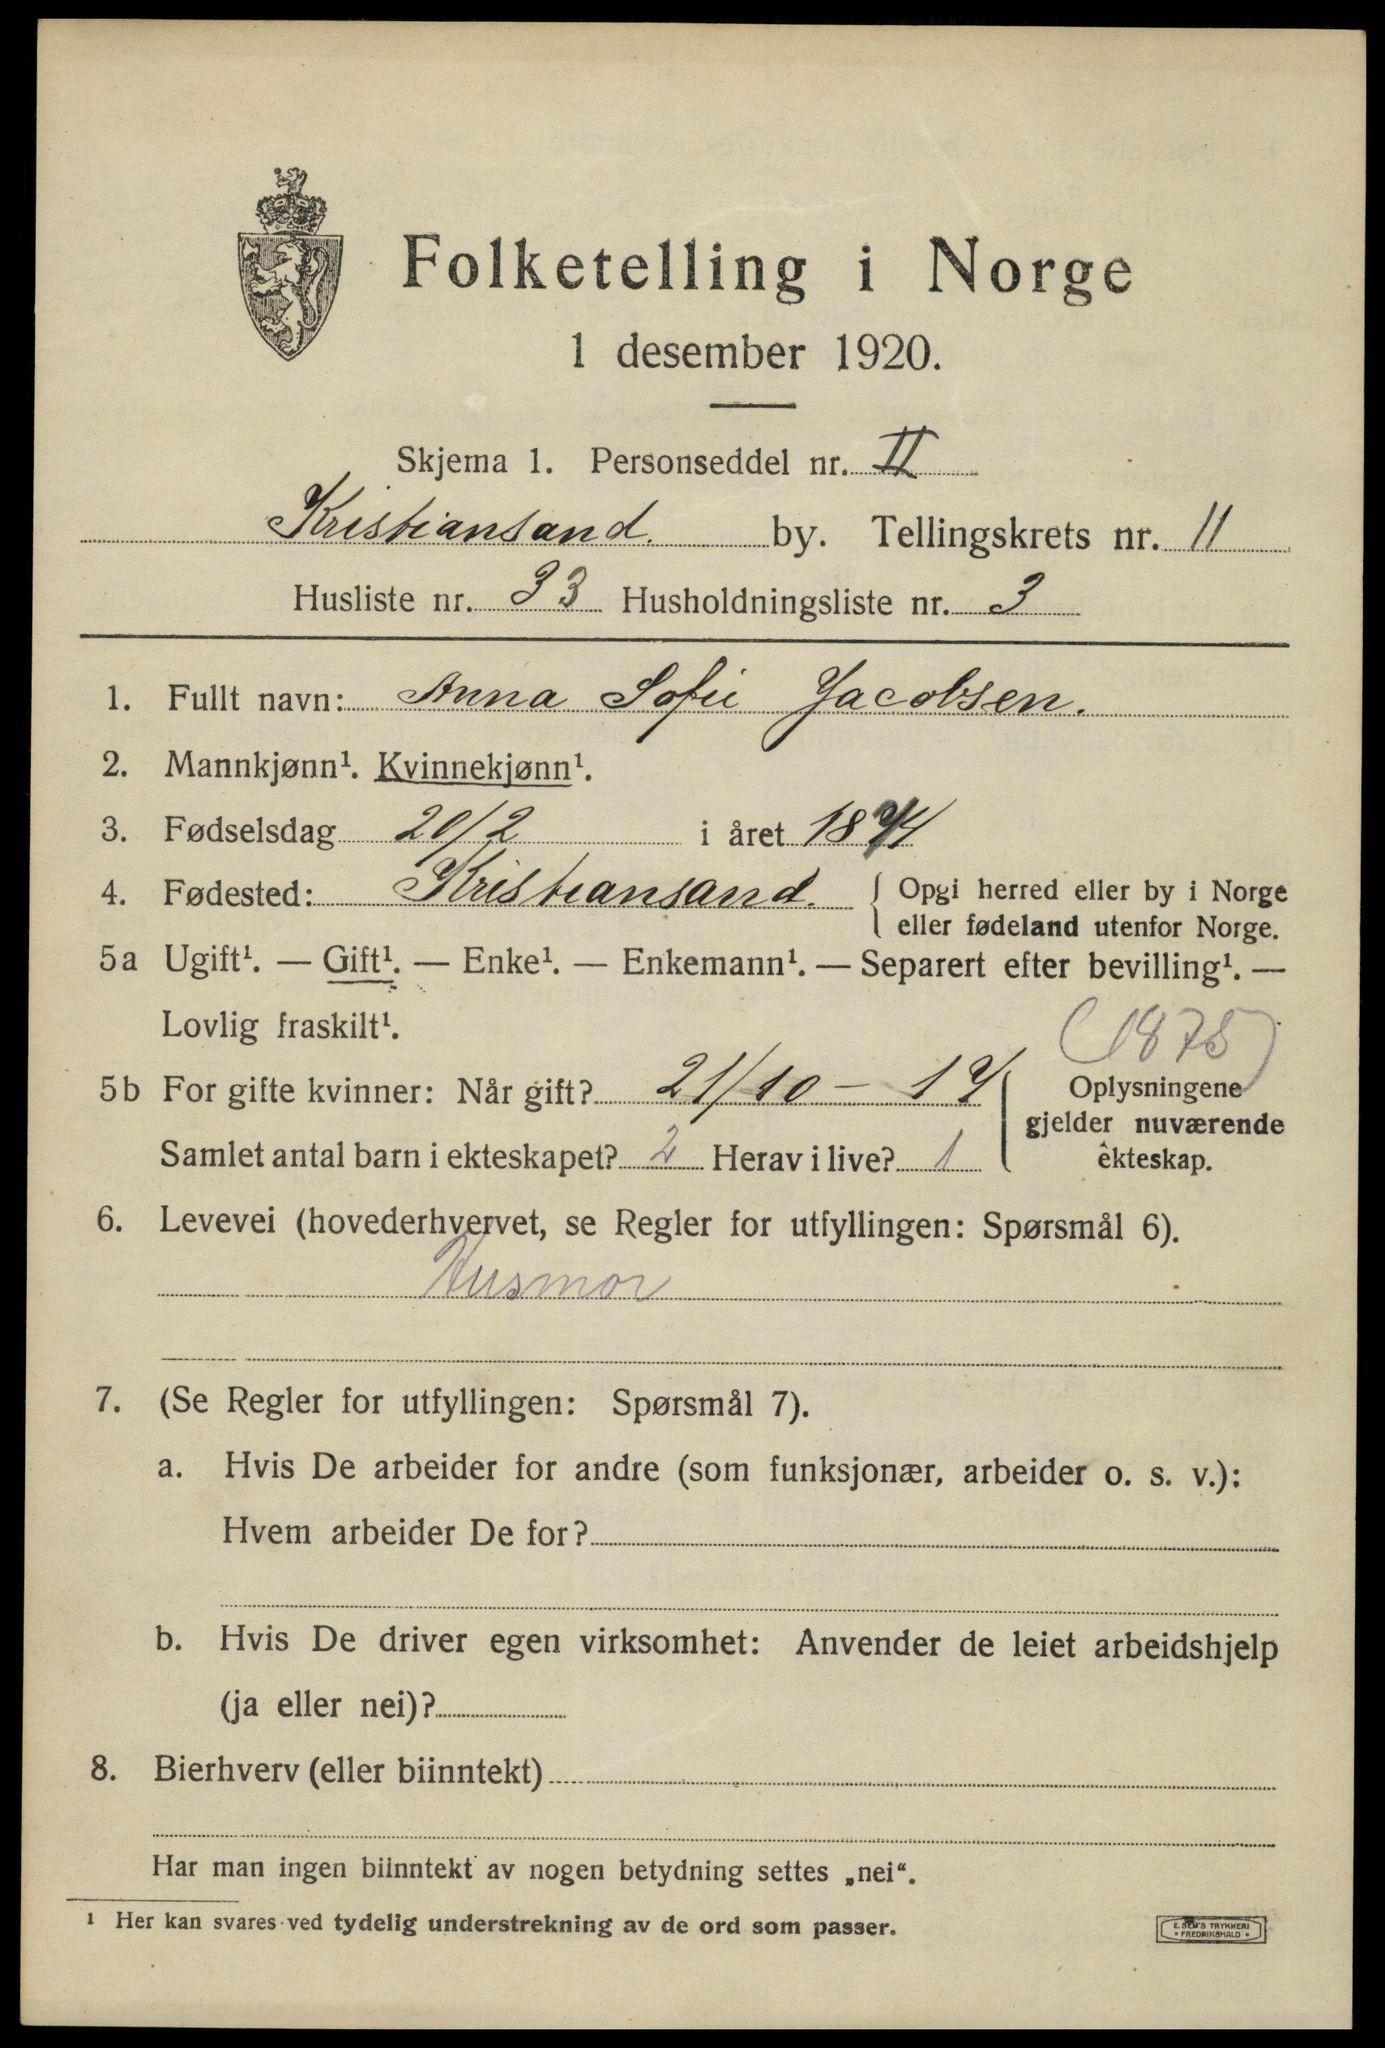 Folketelling i Norge
1 desember 1920.
Skjema 1. Personseddel nr. II
Kristiansand. by. Tellingskrets nr. 11
Husliste nr. 33 Husholdningsliste nr. 3
1. Fullt navn: Anna Sofie Jacobsen.
2. Mannkjønn¹. Kvinnekjønn¹.
3. Fødselsdag 20/2 i året 1874
4. Fødested: Kristiansand. { Opgi herred eller by i Norge
eller fødeland utenfor Norge.
5a Ugift¹. — Gift¹. — Enke¹. — Enkemann¹. — Separert efter bevilling¹. —
Lovlig fraskilt¹.
(1875)
5b For gifte kvinner: Når gift? 21/10 – 17
Samlet antal barn i ekteskapet? 2 Herav i live? 1
Oplysningene
gjelder nuværende
ekteskap.
6. Levevei (hovederhvervet, se Regler for utfyllingen: Spørsmål 6).
Husmor
7. (Se Regler for utfyllingen: Spørsmål 7).
a. Hvis De arbeider for andre (som funksjonær, arbeider o. s. v.):
Hvem arbeider De for?
b. Hvis De driver egen virksomhet: Anvender de leiet arbeidshjelp
(ja eller nei)?
8. Bierhverv (eller biinntekt)
Har man ingen biinntekt av nogen betydning settes „nei“.
¹ Her kan svares ved tydelig understrekning av de ord som passer.
E. SEM'S TRYKKERI
* FREDRIKSHALD *